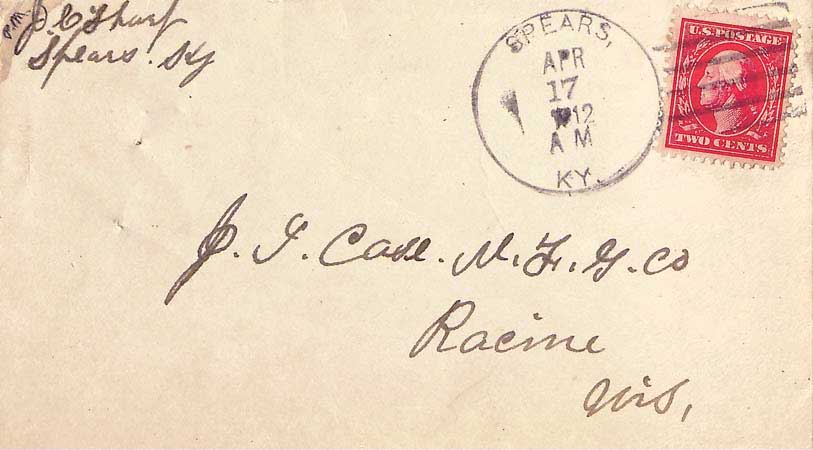 P.M.
J. C. Tharp
Spears. Ky
SPEARS,
APR
17
1912
AM
KY.
U.S. POSTAGE
TWO CENTS
J. I. Case. M. F. G. Co
Racine
Wis,